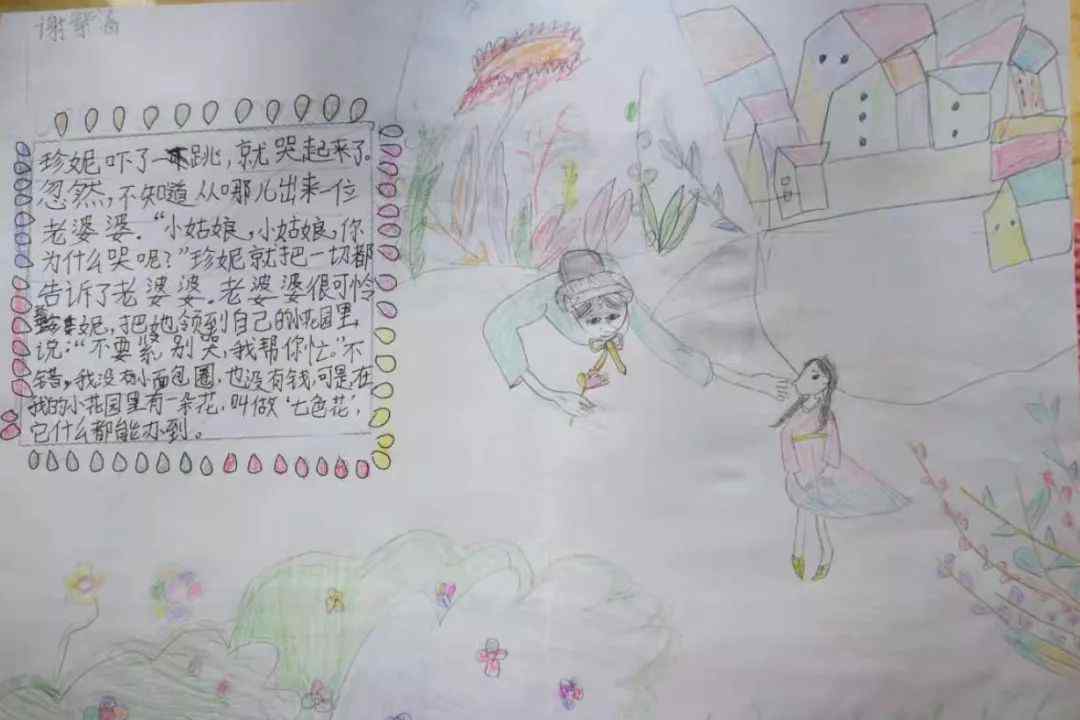 谢
珍妮吓了一跳，就哭起来了。
忽然，不知道从哪儿出来一位
老婆婆。“小姑娘，小姑娘，你
为什么哭呢？”珍妮就把一切都
告诉了老婆婆。老婆婆很可怜
妮，把她领到自己的小花园里，
说：“不要紧，别哭，我帮你忙。”不
错，我没有小面包圈，也没有钱，可是，在
我的小花园里有一朵花，叫做‘七色花’，
它什么都能办到。